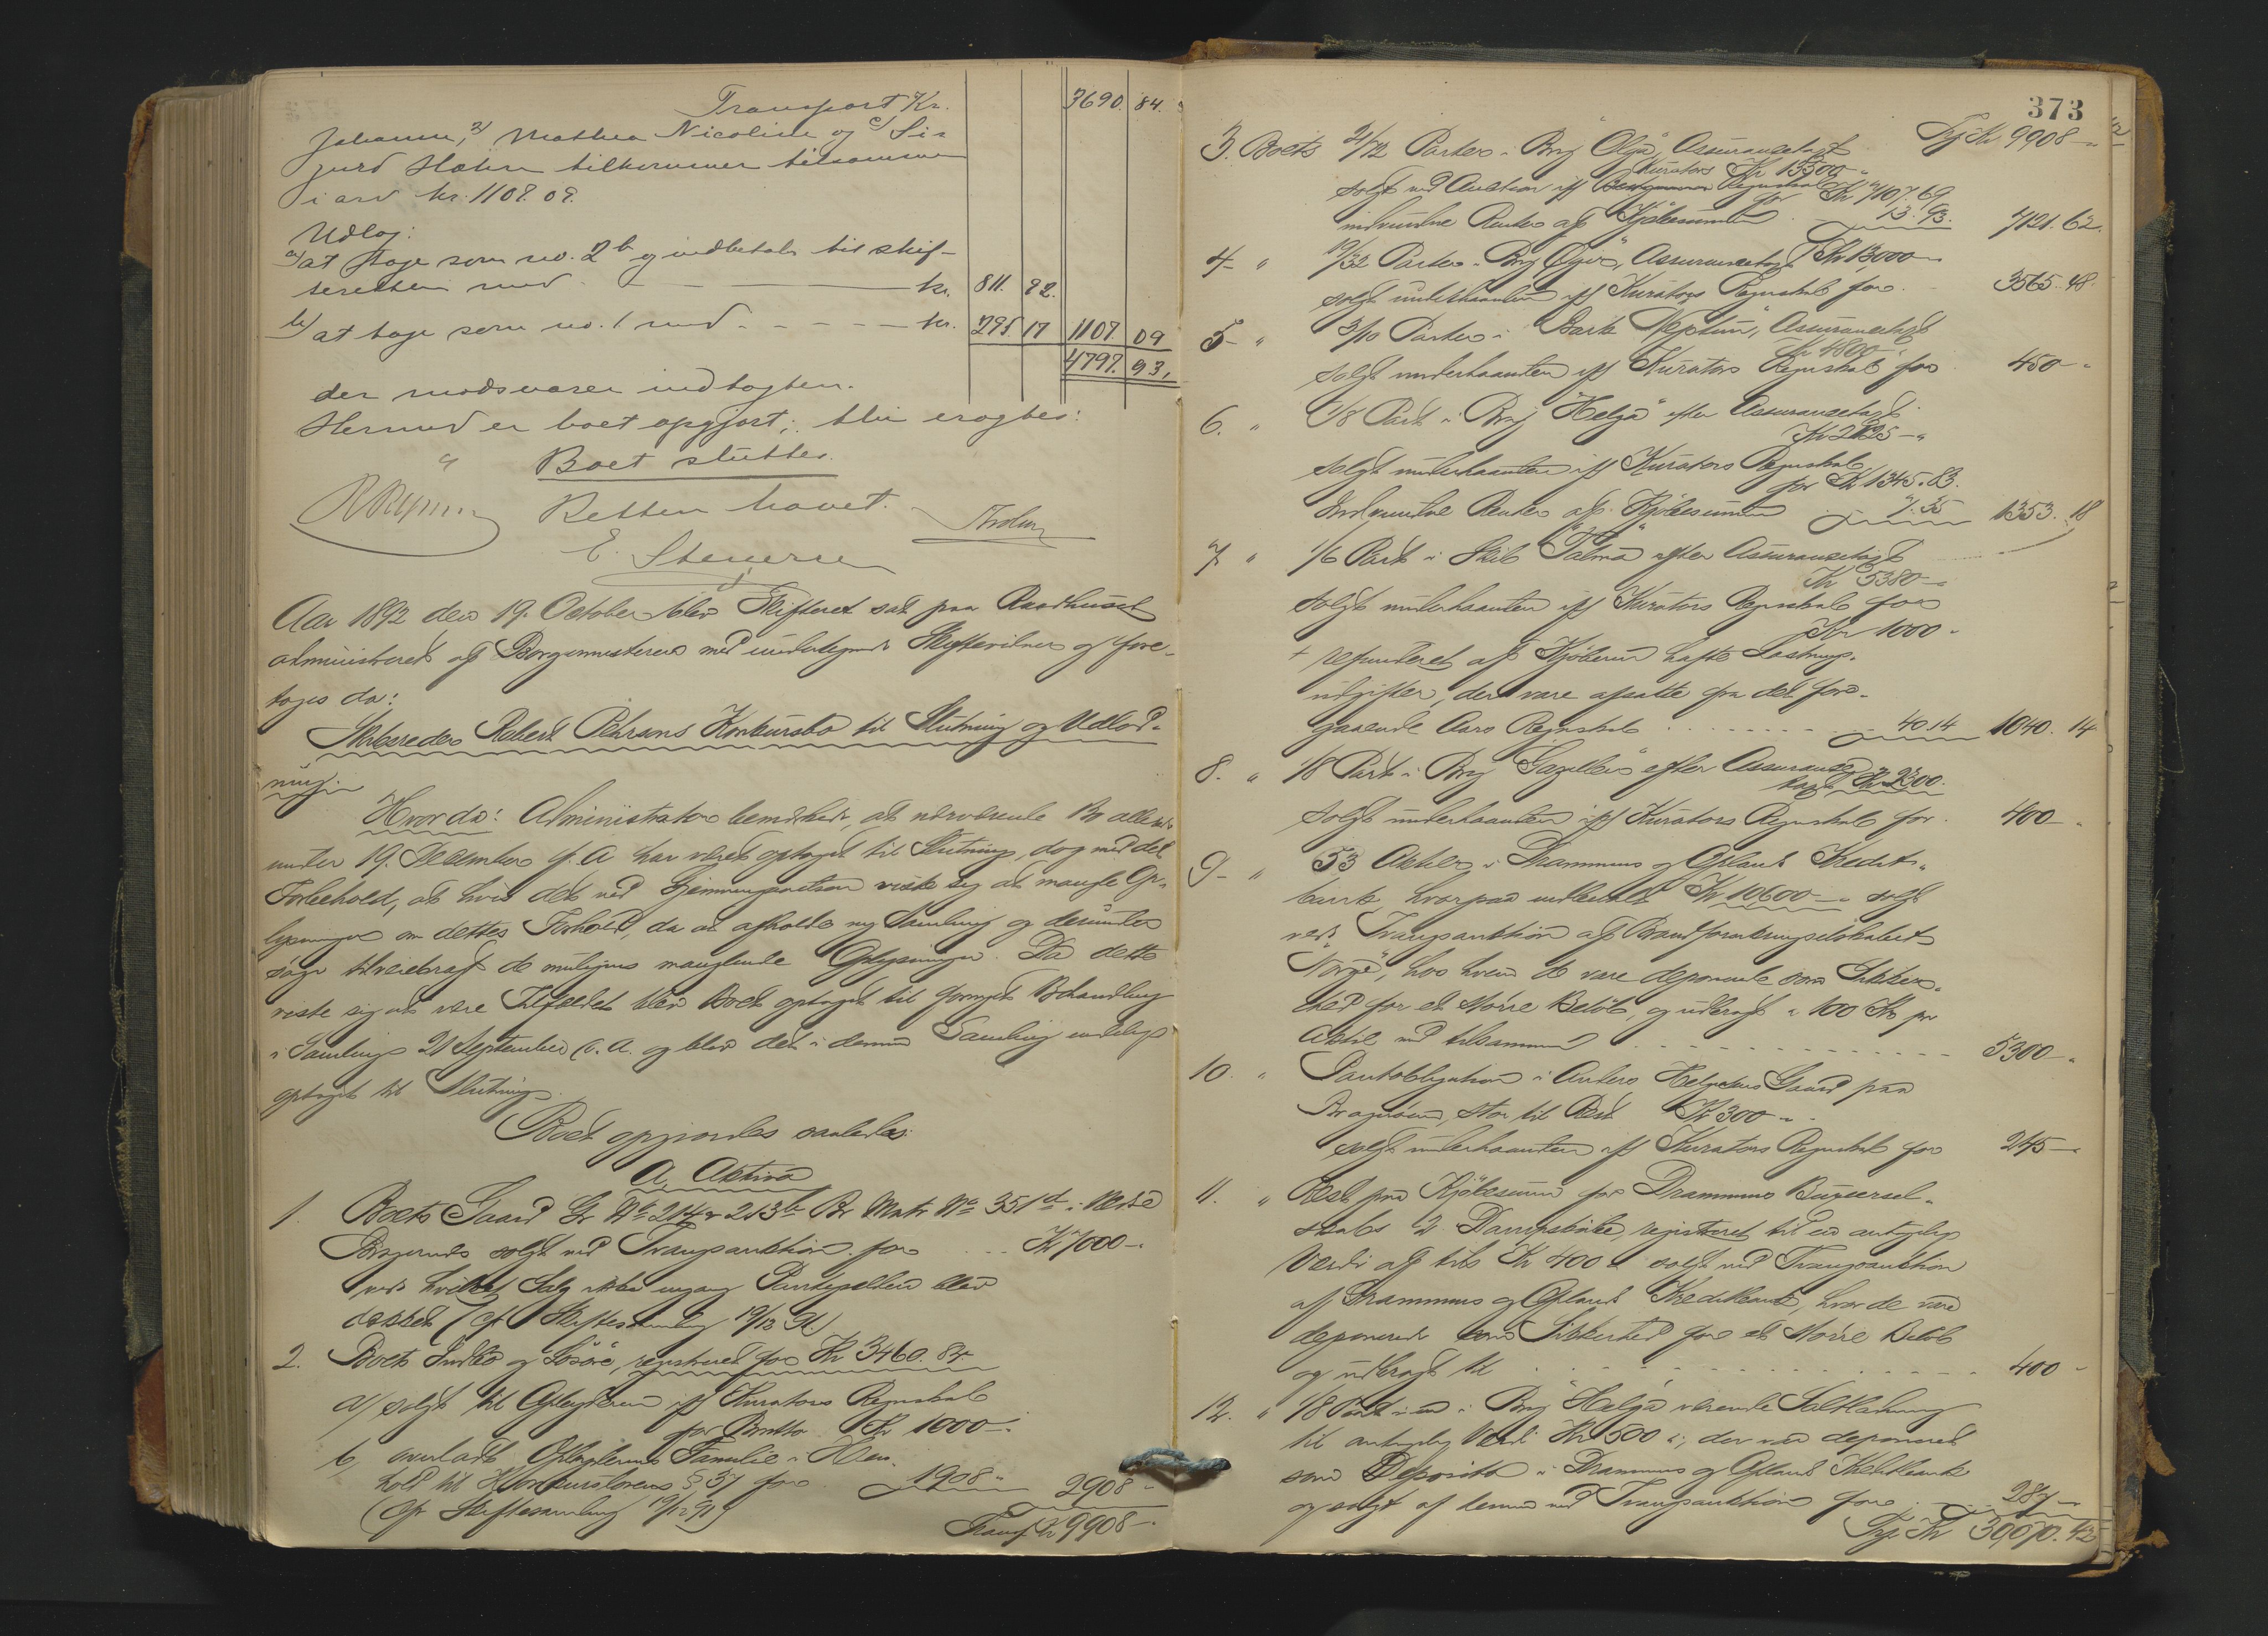 Transport Kr. 3690. 84.
Johanne, Mathea Nicoline og c) Si-
gurd Holm tilkommer tilsammen
i arv kr. 1107.09.
Udlog:
a) at tage som no. 2 b og indbetale til skif-
teretten med - - kr. 811. 92.
b) at tage som no. 1 med - - - - kr. 295 17 1107. 09
4797. 93.
der modsvarer indtægten.
Hermed er boet opgjort; blev eragtet:
Boet sluttes.
Retten hævet.
E. Stenersen
Aar 1892 den 19. October blev Skifteret sat paa Raadhuset
administreret af Borgermesteren med undertegnede Skiftevidner og fore-
toges da:
Skibsreder Robert Pehrsons Konkursbo til Slutning og Udlod-
ning.
Hvorda: Administrator bemærkede, at nærværende Bo allerede
under 19. December f. A. har været optaget til Slutning, dog med det
Forbehold, at hvis det ved Gjennemgaaelsen viste sig at mangle Op-
lysninger om dettes Forhold, da at afholde ny Samling og derunder
søge tilveiebragt de muligens manglende Oplysninger. Da dette
viste sig at være Tilfældet blev Boet optaget til fornyet Behandling
i Samling 21 September d. A. og blev det i denne Samling endelig
optaget til Slutning.
Boet opgjordes saaledes:
A. Aktiva
1. Boets Gaard Gr No 214 & 213b Br Matr No 351d i Nedre
solgt ved Tvangsauktion for .. Kr 7000 -.
ved hvilket Salg ikke engang Pantegjælden blev
dækket (cfr Skiftesamling 19/12 91)
2. Boets Indbo og Løsøre, registreret for Kr 3460.84.
a) solgt til Opbyderen if Kurators Regnskab
for Brutto Kr 1000 -.
b, overladt Opbyderens Familie i Hen-
hold til Konkurslovens § 37 for 1908 " 2908 "
(cfr Skiftesamling 19/12 91)
Transp. Kr 9908 -.
373
Trp. Kr 9908 -"
3. Boets 21/72 Parter i Brig "Olga", Assurancetaxt
Kr 13500 -
solgt ved Auction if Kurators Regnskab for Kr 7107.69
indvundne Renter af Kjøbesummen 13.93. 7121.62.
4 - " 19/32 Parter i Brig , Assurancetaxt Kr 13,000 -
solgt underhaanden if Kurators Regnskab for - 3565.48.
5 - " 3/10 Parter i Bark "Neptun", Assurancetaxt
Kr 4800
solgt underhaanden if Kurators Regnskab for 450 - "
6. " 1/8 Part i Brig "Helga" efter Assurancetaxt
Kr 2125 - "
solgt underhaanden if Kurators Regnskab
for Kr 1345.83.
Indvundne Renter af Kjøbesummen 7.35 1353.18
7 " 1/6 Part i Skib "Talma" efter Assurancetaxt
Kr 5380 - "
solgt underhaanden if Kurators Regnskab for
Kr 1000 -
+ refunderet af Kjøberen hafte Lastnings-
udgifter, der vare afsatte fra det fore-
gaaende Aars Regnskab . . . . . . . . 40.14 1040.14
8. " 1/8 Part i Brig "Gazellen" efter Assurance
taxt Kr 2300.
solgt underhaanden if Kurators Regnskab for 400 - "
9 - " 53 Aktier i Drammens og Oplands Kredit-
bank, hvorpaa indbetalt Kr 10,600 - " solgt
ved Tvangsauktion af Brandforsikringsselskabet
"Norge", hos hvem de vare deponerede som Sikker-
hed for et større Beløb, og udbragt à 100 Kr pr
Aktie ved tilsammen . . . . . . . . . 5300 - "
10. " Pantobligation i Anders Helgesens Gaard paa
Bragernæs, stor til Rest Kr 300 - "
solgt underhaanden if Kurators Regnskab for 245 - "
11. " Rest paa Kjøbesum for Drammens Bugserscel-
skabs 2 Dampskibe, registreret til en antagelig
Værdi af tils Kr 400 " solgt ved Tvangsauktion
af Drammens og Oplands Kreditbank, hvor de vare
deponerede som Sikkerhed for et større Beløb
og udbragt til . . . . . . . . . . 400 "
12. " 1/8 Part i en i Brig "Helga" værende Saltladning
til antagelig Værdi Kr 500 ", der var deponeret
som Depositum i Drammens og Oplands Kreditbank
og solgt af denne ved Tvangsauktion for . . 287 - "
Trp. Kr 30,070.42